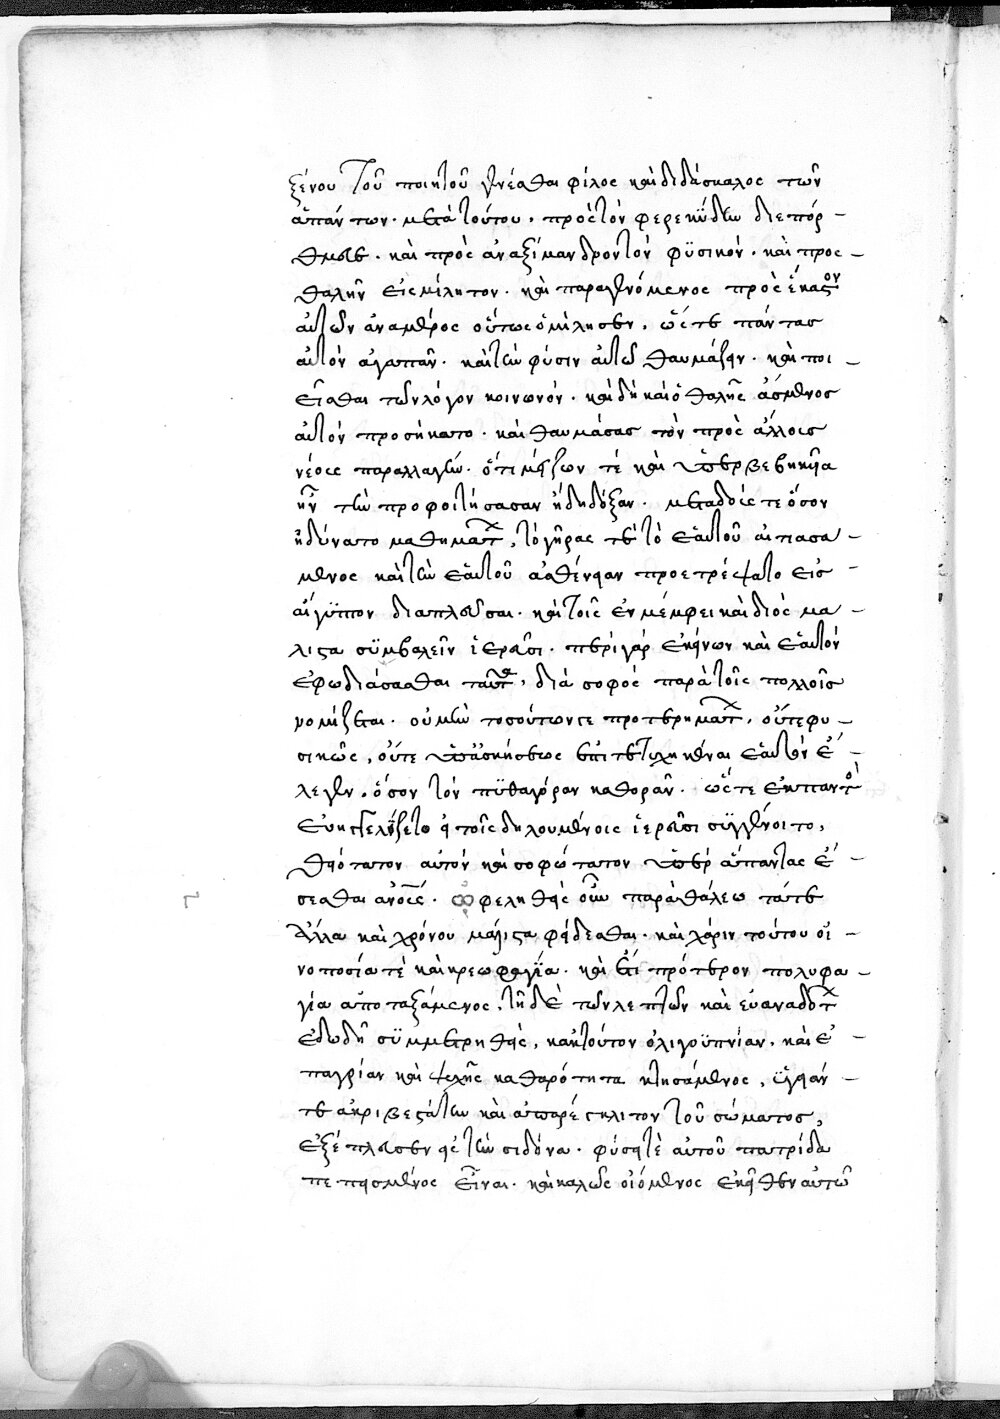 ξένου τοῦ ποιητοῦ γενέσθαι φίλος καὶ διδάσκαλος τῶν
ἁπάντων. μετὰ τούτου, πρὸς τὸν φερεκύδην διεπόρ-
θμευε. καὶ πρὸς ἀναξίμανδρον τὸν φϋσικόν. καὶ προς
θαλῆν εἰς μίλητον. καὶ παραγενόμενος πρὸς ἕκαστον
αὐτῶν ἀναμέρος οὕτως ὁμίλησεν, ὥστε πάντας
αὐτὸν ἀγαπᾶν. καὶ τὴν φύσιν αὐτοῦ θαυμάζειν. καὶ ποι-
εῖσθαι τῶν λόγων κοινωνόν. καὶ δὴ καὶ ὁ θαλῆς ἄσμενος
αὐτὸν προσήκατο. καὶ θαυμάσας τὴν πρὸς ἄλλους
νέους παραλλαγὴν. ὅτι μείζων τὲ καὶ ὑπερβεβηκυῖα
ἦν τὴν προφοιτήσασαν ἤδη δόξαν. μεταδούς τε ὅσων
ἠδύνατο μαθημάτων, τὸ γῆρας τε τὸ ἑαυτοῦ αἰτιασά-
μενος καὶ τὴν ἑαυτοῦ ἀσθένειαν προετρέψατο εἰς
αἴγϋπτον διαπλεῦσαι. καὶ τοῖς ἐν μέμφει καὶ διὸς μά-
λιστα συμβαλεῖν ἱερεῦσι. περὶ γὰρ ἐκείνων καὶ ἑαυτὸν
ἐφωδιάσθαι ταῦτα, διὰ σοφὸς παρὰ τοῖς πολλοῖς
νομίζεται. οὐ μὴν τοσούτων γε προτερημάτων, οὔτε φυ-
σικῶς, οὔτε ὑπ' ἀσκήσεως ἐπιτετυχηκέναι ἑαυτὸν ἔ-
λεγεν, ὅσον τὸν πϋθαγόραν καθορᾶν. ὥστε ἐκ παντὸς
εὐηγγελίζετο εἰ τοῖς δηλουμένοις ἱερεῦσι συγγένοιτο,
θειότατον αὐτὸν καὶ σοφώτατον ὑπὲρ ἅπαντας ἔ-
σεσθαι ἀνους. ὠφεληθεὶς οὖν παρὰ θάλεω τάτε
ἄλλα καὶ χρόνου μάλιστα φείδεσθαι. καὶ χάριν τούτου οἰ-
νοποσία τὲ καὶ κρεωφαγίᾳ. καὶ ἔτι πρότερον πολυφα-
γία ἀποταξάμενος, τῇ δὲ τῶν λεπτῶν καὶ εὐαναδότων
ἐδωδῇ συμμετρηθεὶς, κἀκ τούτου ὀλιγοϋπνίαν, καὶ ἐ-
παγρίαν καὶ ψυχῆς καθαρότητα κτησάμενος, ὑγείαν-
τε ἀκριβεστάτην καὶ ἀπαρέγκλιτον τοῦ σώματος,
ἐξέπλευσεν εἰς τὴν σιδόνα. φύσει τὲ αὐτοῦ πατρίδα
πεπεισμένος εἶναι. καὶ καλῶς οἰόμενος ἐκεῖθεν αὐτῶ